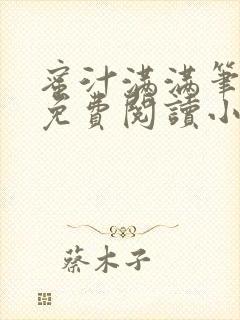 蜜汁滿滿筆
免費閱讀小
蔡木子